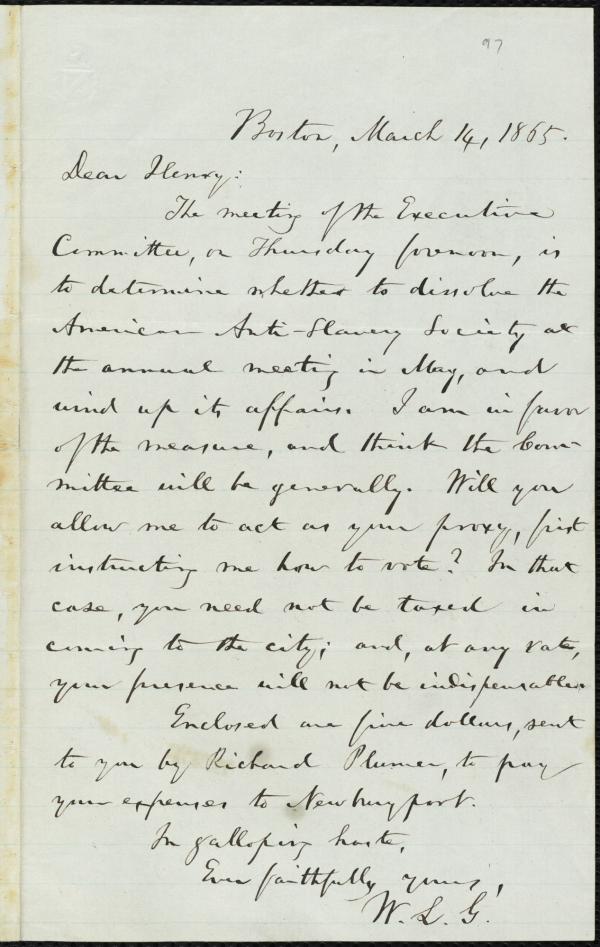 97
Boston, March 14, 1865.
Dear Henry:
The meeting of the Executive
Committee, on Thursday forenoon, is
to determine whether to dissolve the
American Anti-Slavery Society at
the annual meeting in May, and
wind up its affairs. I am in favor
of the measure, and think the Com-
mittee will be generally. Will you
allow me to act as your proxy, first
instructing me how to vote? In that
case, you need not be taxed in
coming to the city; and, at any rate,
your presence will not be indispensable.
Enclosed are five dollars, sent
to you by Richard Plumer, to pay
your expenses to Newburyport.
In galloping haste,
Ever faithfully yours,
W. L. G.